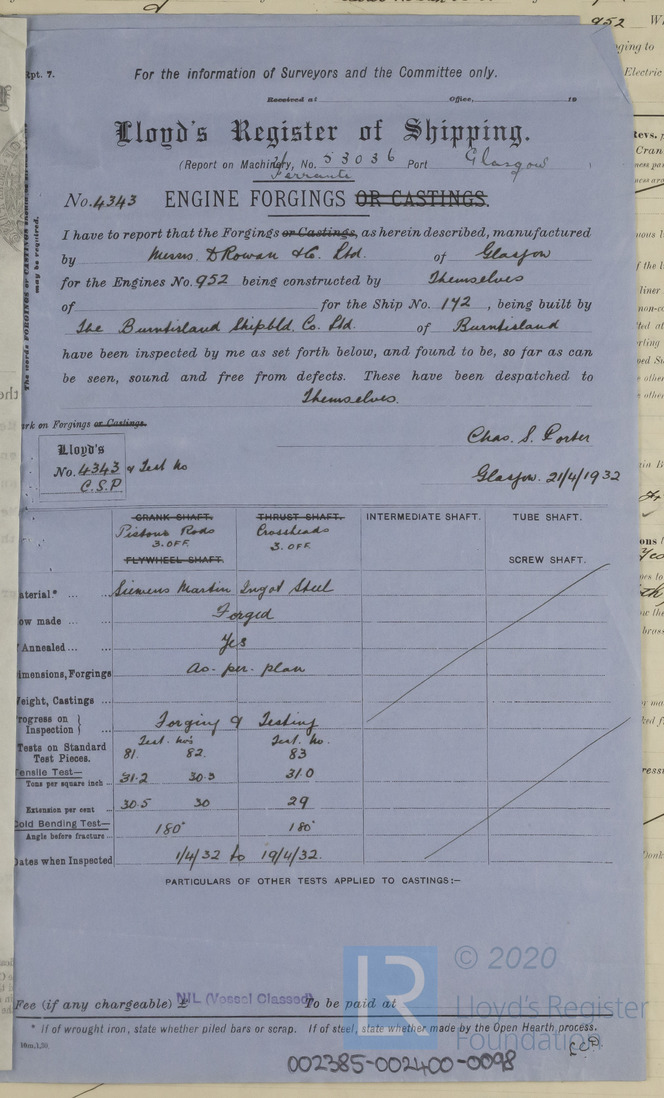 952
Rpt. 7.
For the information of Surveyors and the Committee only.
Received at Office, 19
Lloyd's Register of Shipping.
(Report on Machinery, No. 53036 Port Glasgow
No. 4343 ENGINE FORGINGS OR CASTINGS.
I have to report that the Forgings or Castings, as herein described, manufactured
by Messrs. D Rowan & Co. Ltd. of Glasgow
for the Engines No. 952 being constructed by Themselves
of for the Ship No. 172, being built by
The Burntisland Shipbld. Co. Ltd. of Burntisland
have been inspected by me as set forth below, and found to be, so far as can
be seen, sound and free from defects. These have been despatched to
Themselves.
The words FORGINGS or CASTINGS should be
may be required.
rk on Forgings or Castings.
Lloyd's
No. 4343 & Test No
C.S.P
Chas. S. Porter
Glasgow. 21/4/1932
CRANK SHAFT. THRUST SHAFT. INTERMEDIATE SHAFT. TUBE SHAFT.
Pistons Rods Crossheads
3.OFF 3.OFF.
FLYWHEEL SHAFT. SCREW SHAFT.
aterial.* Siemens Martin Ingot Steel
ow made Forged
Annealed Yes
imensions, Forgings As. per. plan
eight, Castings
rogress on Inspection } Forging & Testing
Tests on Standard Test. Nos Test. No.
Test Pieces. 81. 82. 83
Tensile Test—
Tons per square inch 31.2 30.5 31.0
Extension per cent 30.5 30 29
Cold Bending Test—
Angle before fracture 180° 180°
Dates when Inspected 1/4/32 to 19/4/32.
PARTICULARS OF OTHER TESTS APPLIED TO CASTINGS:—
Fee (if any chargeable) £ NIL (Vessel Classed) To be paid at
* If of wrought iron, state whether piled bars or scrap. If of steel, state whether made by the Open Hearth process.
© 2020
LR
Lloyd's Register
Foundation
002385-002400-0098